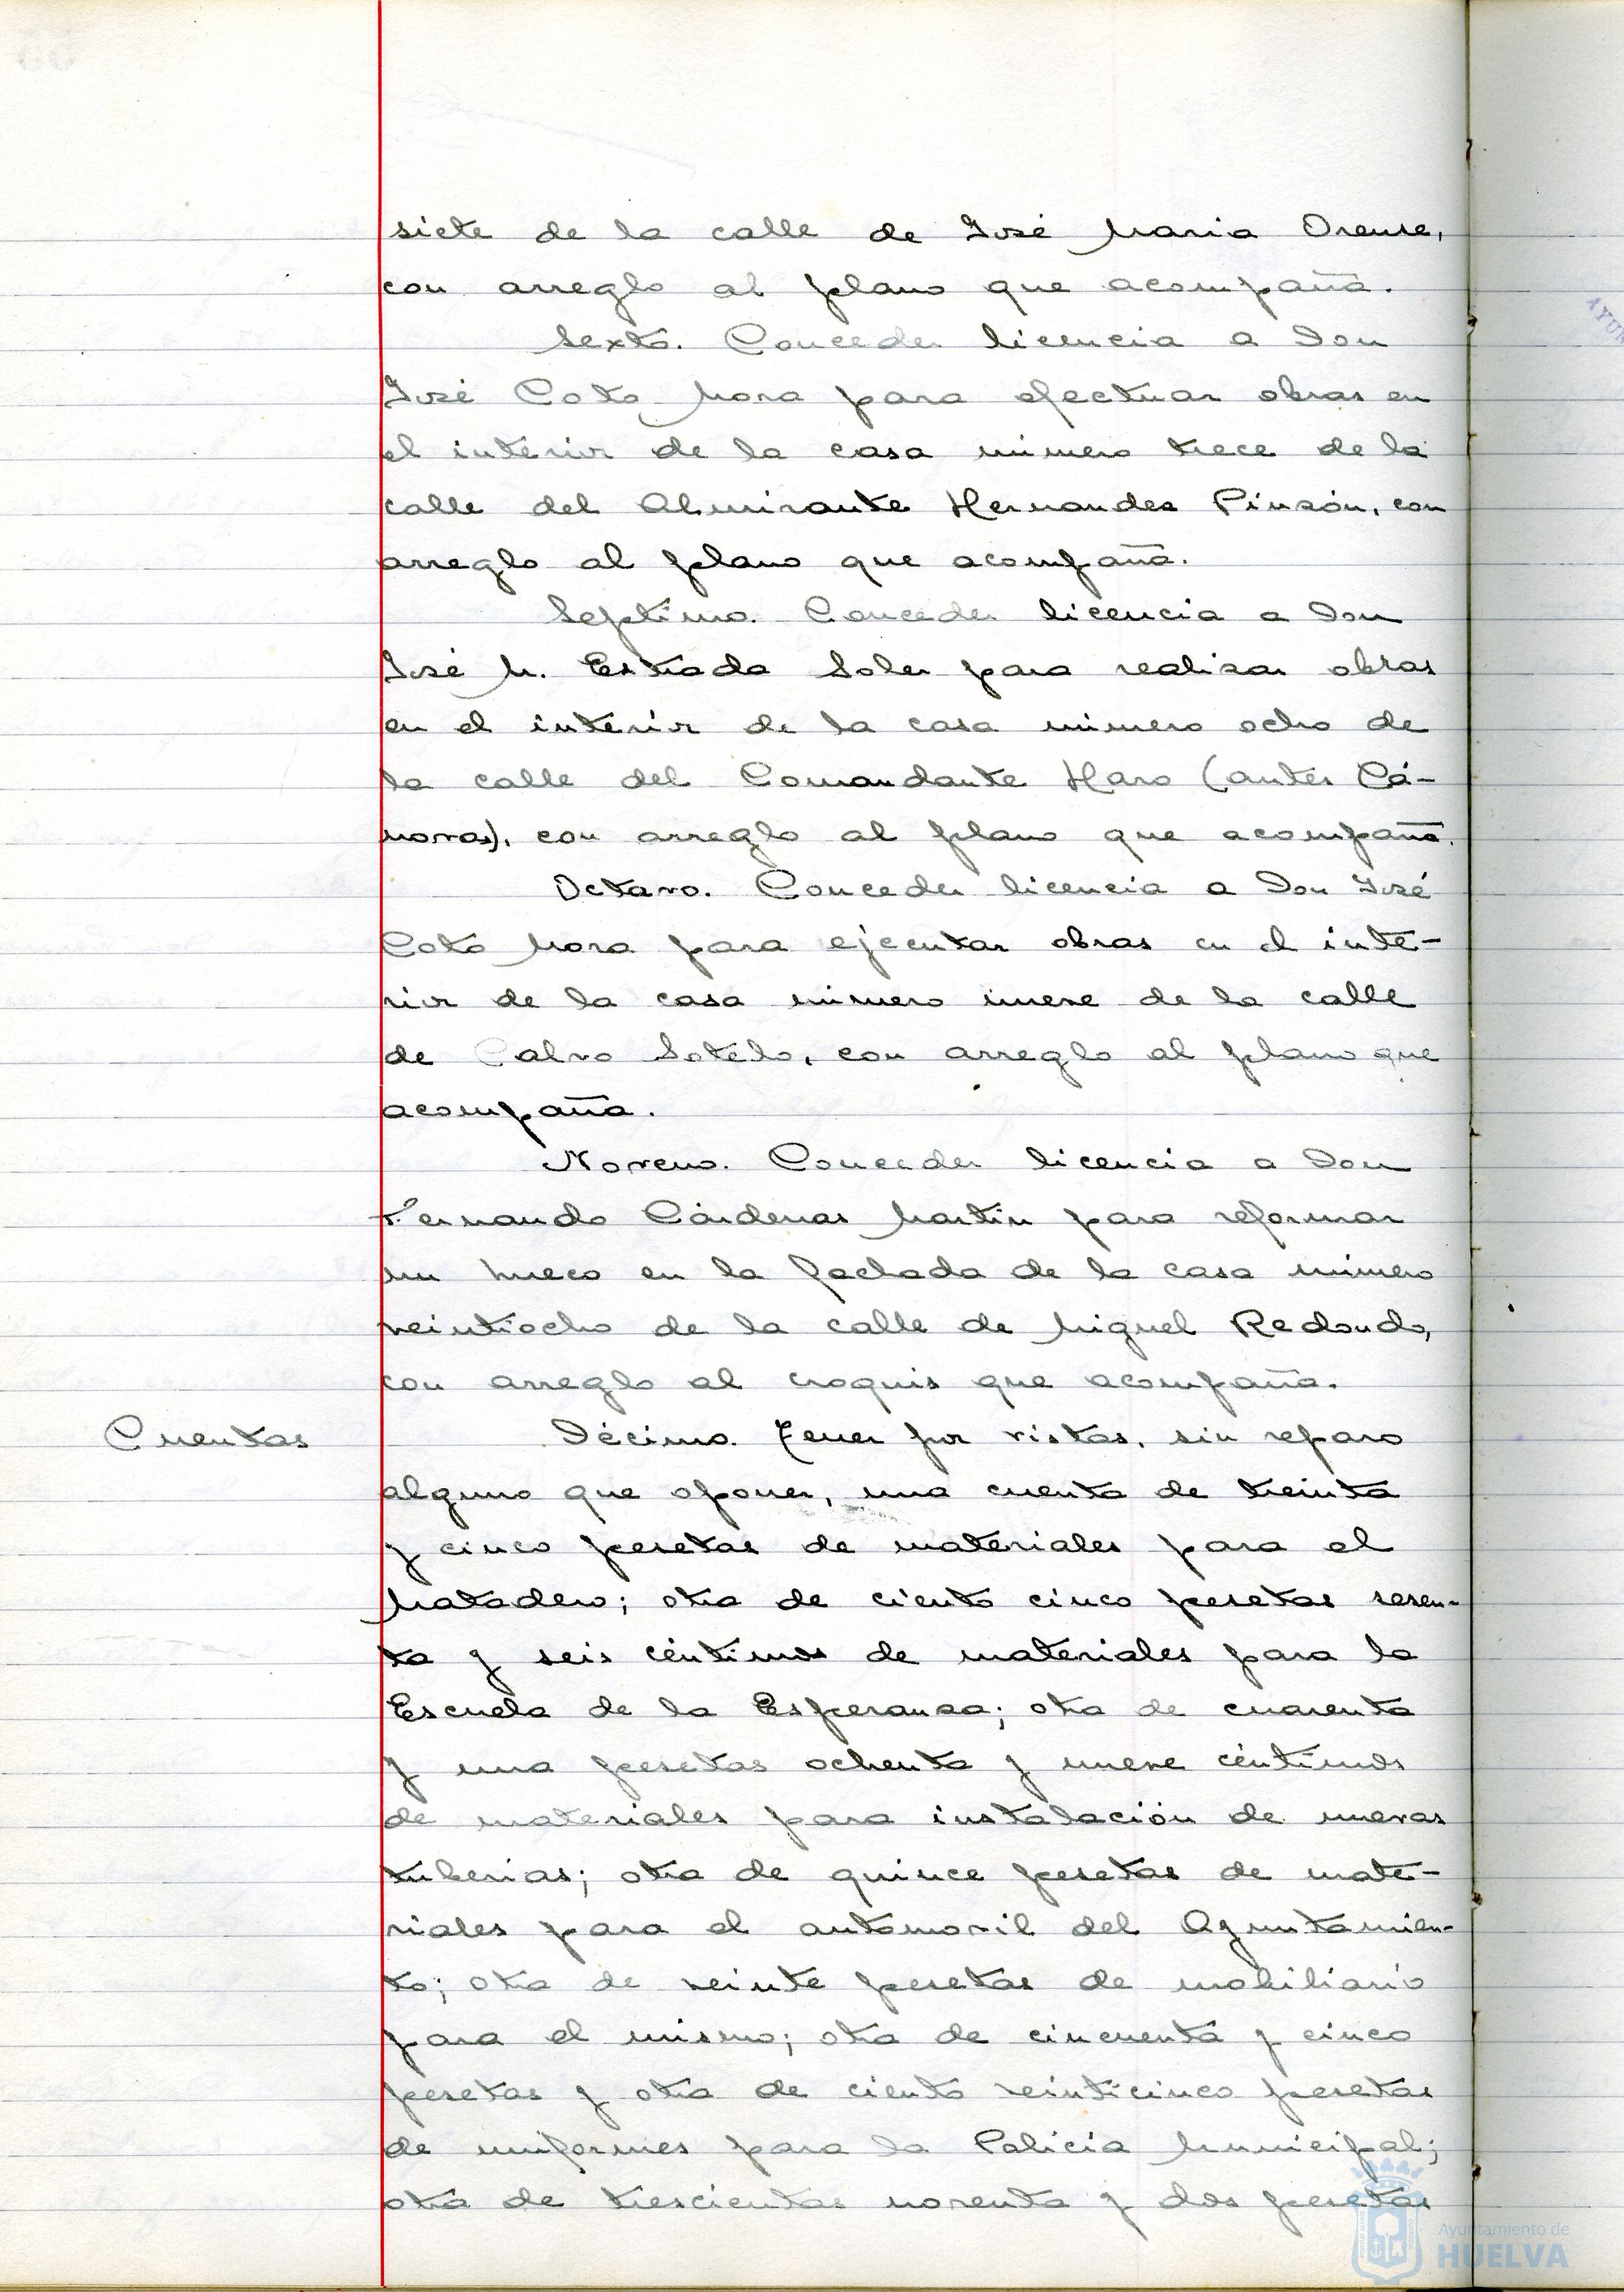 siete de la calle de José Maria Orense,
con arreglo al plano que acompaña.
Sexto. Conceder licencia a Don
José Coto Mora para efectuar obras en
el interior de la casa número trece de la
calle del Almirante Hernandez Pinzón, con
arreglo al plano que acompaña.
Septimo. Conceder licencia a Don
José M. Estrada Soler para realizar obras
en el interior de la casa número ocho de
la calle del Comandante Haro (antes Cá-
novas), con arreglo al plano que acompaña.
Octavo. Conceder licencia a Don José
Coto Mora para ejecutar obras en el inte-
rior de la casa número nueve de la calle
de Calvo Sotelo, con arreglo al plano que
acompaña.
Noveno. Conceder licencia a Don
Fernando Cárdenas Martín para reformar
un hueco en la fachada de la casa número
veintiocho de la calle de Miguel Redondo,
con arreglo al croquis que acompaña.
Cuentas
Décimo. Tener por vistas, sin reparo
alguno que oponer, una cuenta de treinta
y cinco pesetas de materiales para el
Matadero; otra de ciento cinco pesetas sesen-
ta y seis céntimos de materiales para la
Escuela de la Esperanza; otra de cuarenta
y una pesetas ochenta y nueve céntimos
de materiales para instalación de nuevas
tuberias; otra de quince pesetas de mate-
riales para el automovil del Ayuntamien-
to; otra de veinte pesetas de mobiliario
para el mismo; otra de cincuenta y cinco
pesetas y otra de ciento veinticinco pesetas
de uniformes para la Policía Municipal;
otra de trescientas noventa y dos pesetas
Ayuntamiento de
HUELVA